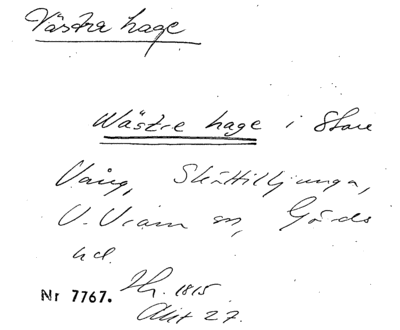 Västra hage
Wästre hage i Stora
Vång, Skättilljunga,
V. Vram sn, Gärds
hd.
Nr 7767. Th. 1815
Akt 27.